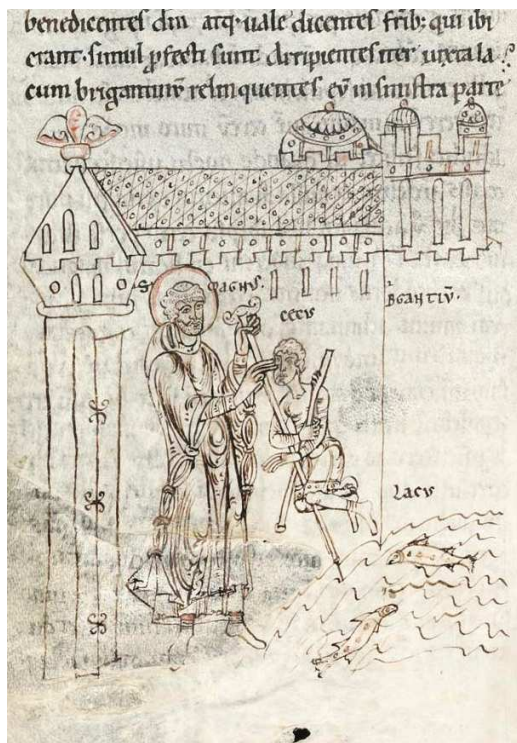 benedicentes dn̄m atq; uale dicentes frīb; qui ibi
erant. simul ꝓfecti sunt Arripientes iter iuxta la
cum brigantiuṁ relinquentes eū in sinistra parte
S MAGNUS.
CECUS
BGANTIŪ.
LACUS